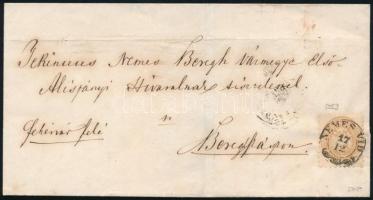 Tekintetes Nemes Beregh Vármegye Első
Alispányi Hivatalnak tisztelettel
Fehérvár felé
Beregszászon
NEMES VID
17
12